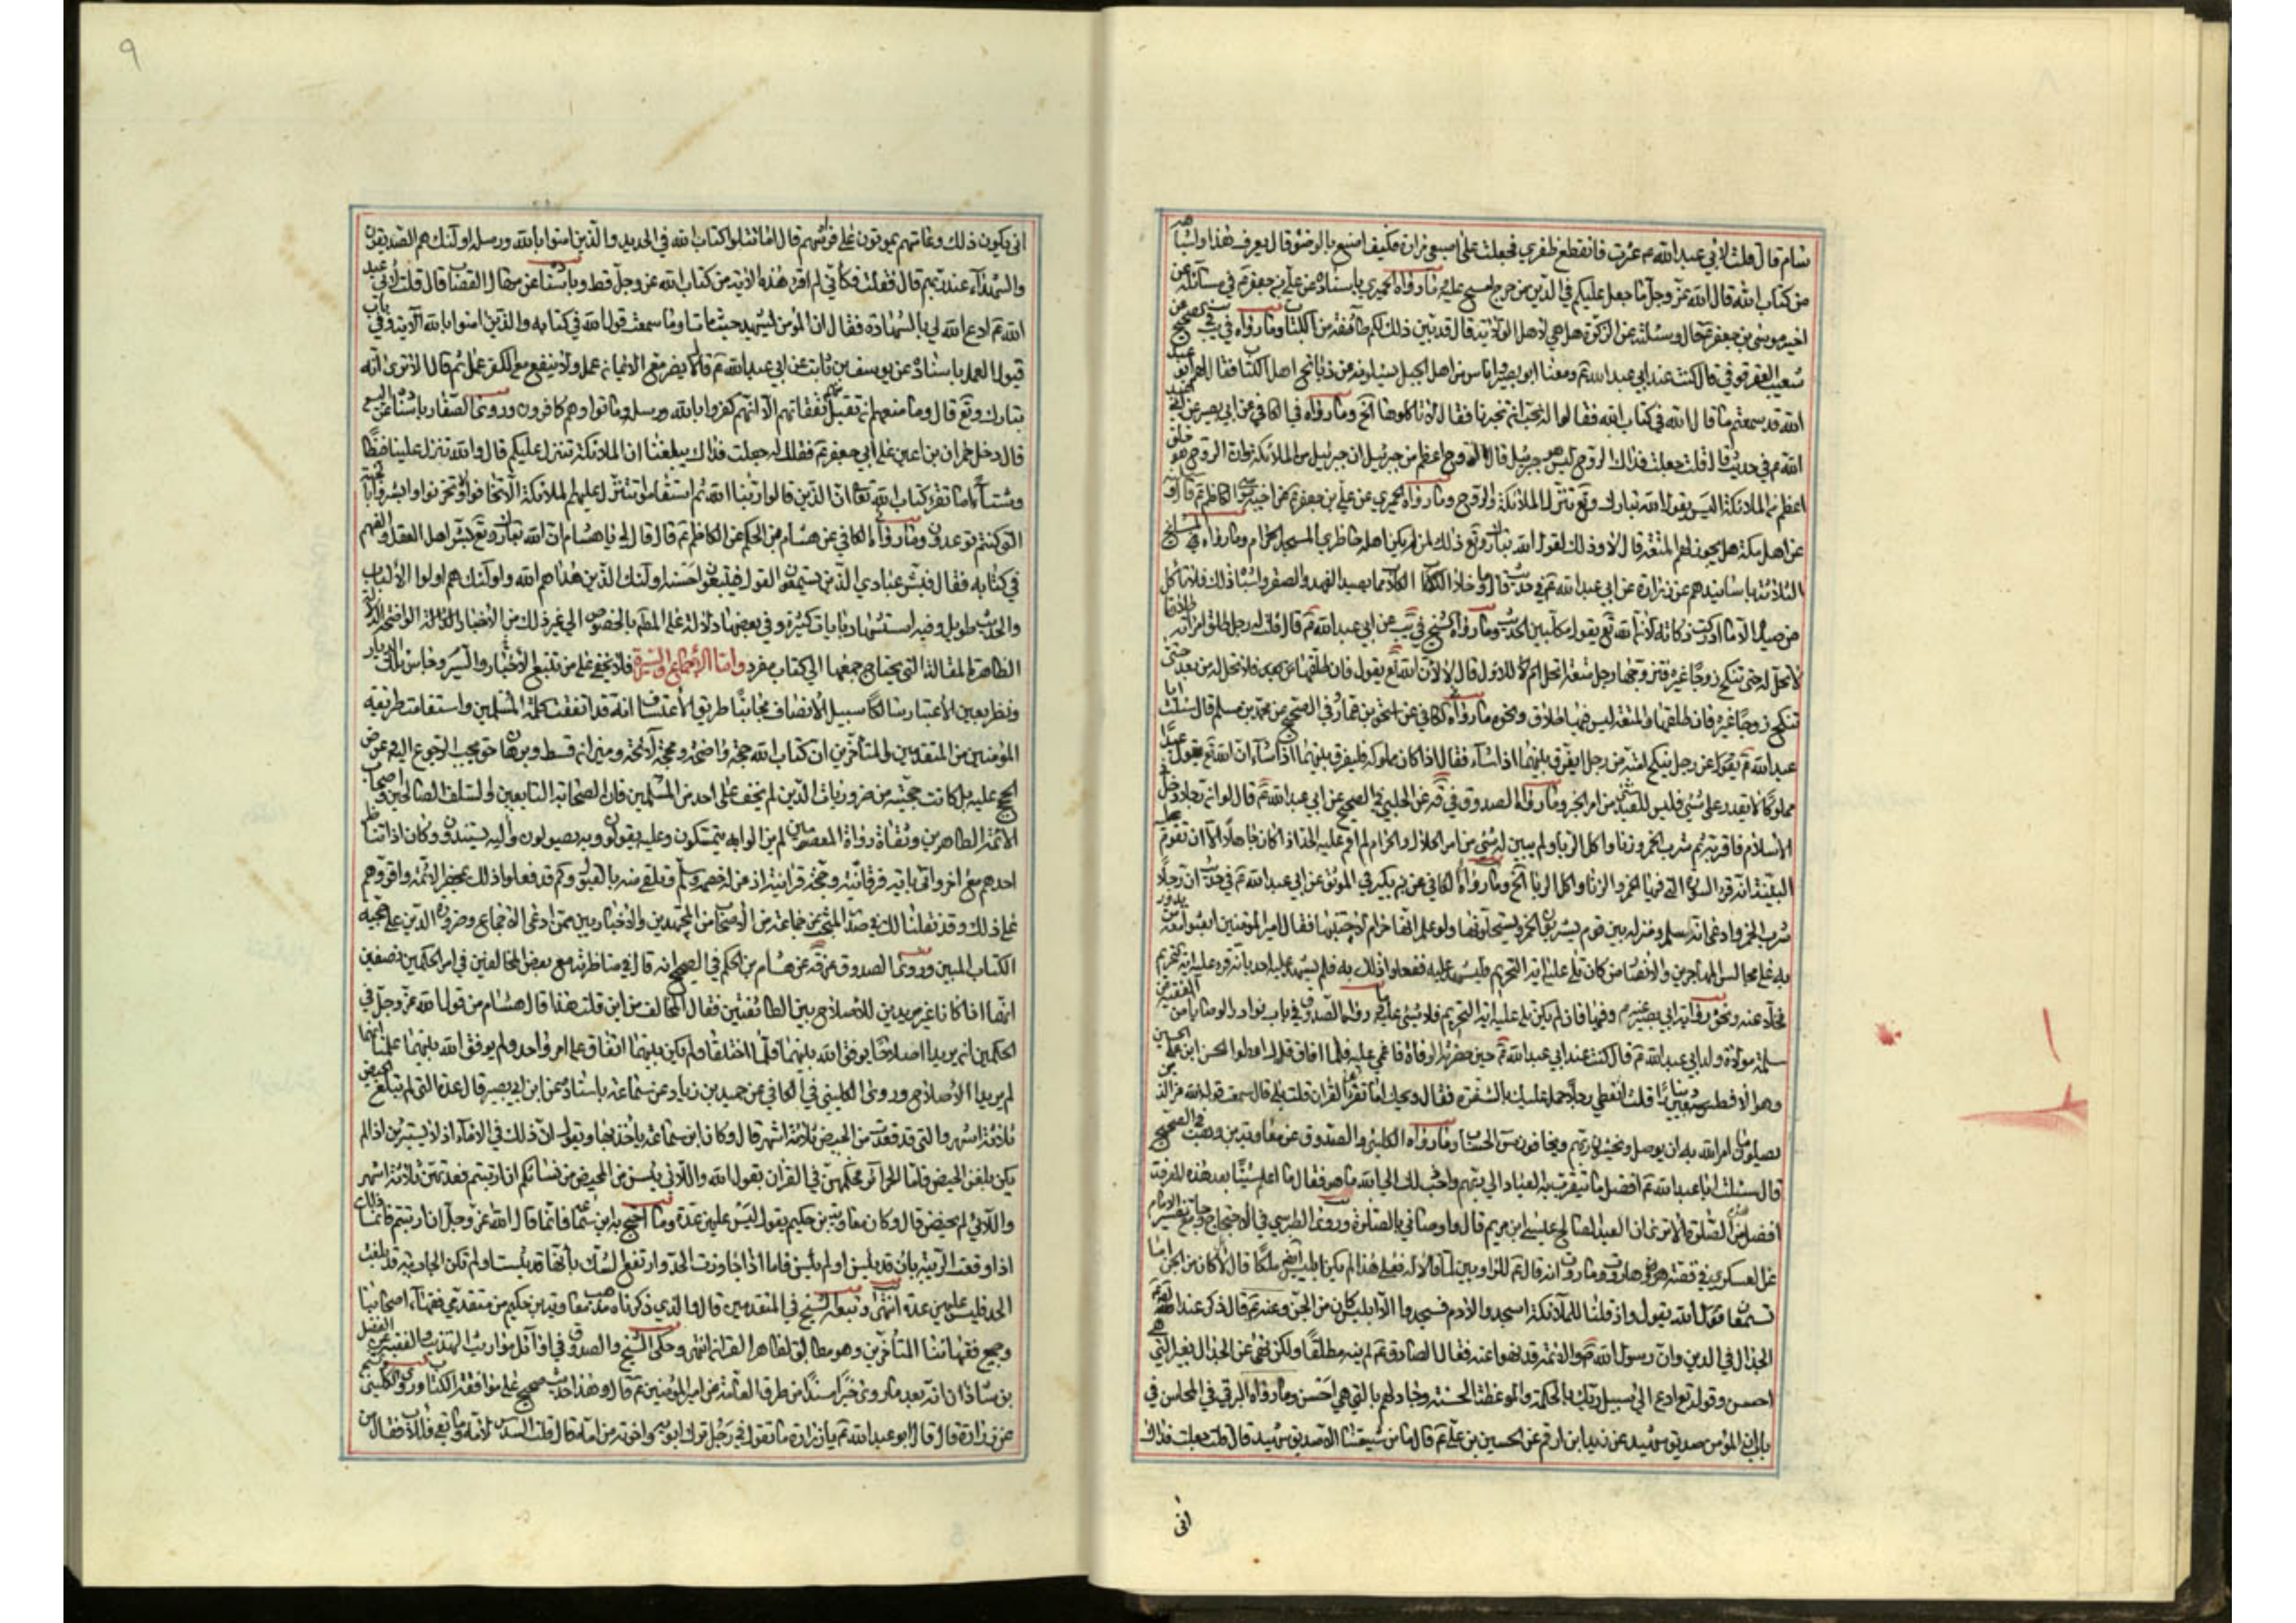 سام قال قلت لابي عبد الله ع عثرت فانقطع ظفري فجعلت على اصبعي مرارة فكيف اصنع بالوضوء قال يعرف هذا واشباهه
من كتاب الله قال الله عز وجل ما جعل عليكم في الدين من حرج امسح عليه وما رواه الحميري باسناده عن علي بن جعفر ع في مسائله عن
اخيه موسى بن جعفر ع قال وسئلته عن الزكوة هل هي لاهل الولاية قال قد بين ذلك لكم طائفة من الكتاب وما رواه في يب في الصحيح عن
شعيب العقرقوفي قال كنت عند ابي عبد الله ع ومعنا ابو بصير واناس من اهل الجبل يسئلونه عن ذبائح اهل الكتاب فقال لهم ابو عبد
الله قد سمعتم ما قال الله في كتابه فقالوا له نحب ان تخبرنا فقال لا تاكلوها الخ وما رواه في الكافي عن ابي بصير عن ابي عبد
الله ع في حديث قال قلت جعلت فداك الروح ليس هو جبرئيل قال الروح اعظم من جبرئيل ان جبرئيل من الملائكة وان الروح هو خلق
اعظم من الملائكة اليس يقول الله تبارك وتع تنزل الملائكة والروح وما رواه الحميري عن علي بن جعفر ع عن اخيه موسى الكاظم ع قال سئلته
عن اهل مكة هل يجوز لهم المتعة قال لا وذلك لقول الله تبارك وتع ذلك لمن لم يكن اهله حاضري المسجد الحرام وما رواه المشايخ
الثلاثة باسانيدهم عن زرارة عن ابي عبد الله ع في حديث قال وما خلا الكلاب مما يصيد الفهود والصقور واشباه ذلك فلا تاكل
من صيده الا ما ادركت ذكاته لان الله تع يقول مكلبين الحديث وما رواه الشيخ في يب عن ابي عبد الله ع قال قلت له رجل طلق امراته طلاقا
لا تحل له حتى تنكح زوجا غيره فتزوجها رجل متعة اتحل للاول قال لا لان الله تع يقول فان طلقها فلا تحل له من بعد حتى
تنكح زوجا غيره فان طلقها والمتعة ليس فيها طلاق ونحوه ما رواه الكافي عن اسحق بن عمار وفي الصحيح عن محمد بن مسلم قال سئلت ابا
عبد الله ع يقول عن رجل ينكح امته من رجل ايفرق بينهما اذا شاء فقال اذا كان مملوكه فليفرق بينهما اذا شاء ان الله تع يقول عبدا
مملوكا لا يقدر على شيء فليس للعبد شيء من الامر الخبر وما رواه الصدوق في يه عن الحلبي في الصحيح عن ابي عبد الله ع قال لو ان رجلا دخل في
الاسلام فاقر به ثم شرب الخمر وزنا واكل الربا ولم يبين له شيء من امر الحلال والحرام لم اقم عليه الحد اذا كان جاهلا الا ان تقوم عليه
البينة انه قرء السورة التي فيها الخمر والزنا واكل الربا الخ وما رواه الكافي عن ابن بكير في الموثق عن ابي عبد الله ع في حديث ان رجلا
شرب الخمر وادعى انه اسلم ومنزله بين قوم يشربون الخمر ويستحلونها ولو علم انها حرام لاجتنبها فقال امير المؤمنين ابعثوا معه من يدور
به على مجالس المهاجرين والانصار من كان تلى عليه اية التحريم فليشهد عليه ففعلوا ذلك به فلم يشهد عليه احد بانه قرء عليه اية التحريم
فخلا عنه ونحوه رواية ابي بصير وفيها فان لم يكن تلى عليه اية التحريم فلا شيء عليه وما رواه الصدوق في باب نوادر الوصايا من الفقيه عن
سلمة مولاة ولد ابي عبد الله ع قال كنت عند ابي عبد الله ع حين حضرته الوفاة فاغمي عليه فلما افاق قال اعطوا الحسن ابن علي بن الحسين
وهو الافطس سبعين دينارا قلت اتعطي رجلا حمل عليك بالشفرة فقال ويحك اما تقرا القران قلت بلى قال سمعت قول الله عز وجل الذين
يصلون ما امر الله به ان يوصل ويخشون ربهم ويخافون سوء الحساب وما رواه الكليني والصدوق عن معاوية بن وهب في الصحيح
قال سئلت ابا عبد الله ع افضل ما يتقرب به العباد الى ربهم واحب ذلك الى الله ما هو فقال ما اعلم شيئا بعد هذه المعرفة
افضل من الصلوة الا ترى ان العبد الصالح عيسى ابن مريم قال واوصاني بالصلوة وروى الطبرسي في الاحتجاج وجامع تفسير الامام
عن العسكري في قصة هاروت وماروت انه قال ع للراويين لما قالا له فعلى هذا لم يكن ابليس ايضا ملكا قال لا كان من الجن اما
تسمعان الله يقول واذ قلنا للملائكة اسجدوا لادم فسجدوا الا ابليس كان من الجن وعنه ع قال ذكر عند الصادق ع
الجدال في الدين وان رسول الله ص والائمة قد نهوا عنه فقال الصادق ع لم ينه مطلقا ولكن نهى عن الجدال بغير التي هي
احسن وقوله تع ادع الى سبيل ربك بالحكمة والموعظة الحسنة وجادلهم بالتي هي احسن وما رواه البرقي في المحاسن في
باب ان المؤمن صديق شهيد عن زيد بن ارقم عن الحسين بن علي ع قال ما من شيعتنا الا صديق شهيد قال قلت جعلت فداك
انى
٩
انى يكون ذلك وعامتهم يموتون على فرشهم قال اما تتلوا كتاب الله في الحديد والذين امنوا بالله ورسله اولئك هم الصديقون
والشهداء عند ربهم قال فقلت فكاني لم اقرء هذه الاية من كتاب الله عز وجل قط وباسناده عن منهال القصاب قال قلت لابي عبد
الله ع ادع الله لي بالشهادة فقال ان المؤمن لشهيد حيث مات اوما سمعت قول الله في كتابه والذين امنوا بالله الاية وفي باب
قبول العمل باسناده عن يوسف بن ثابت عن ابي عبد الله ع قال لا يضر مع الايمان عمل ولا ينفع مع الكفر عمل ثم قال الا ترى انه
تبارك وتع قال وما منعهم ان تقبل منهم نفقاتهم الا انهم كفروا بالله ورسله وماتوا وهم كافرون وروى الصفار باسناده عن
قال دخل حمران بن اعين على ابي جعفر ع فقال له جعلت فداك يبلغنا ان الملائكة تتنزل عليكم قال والله تنزل علينا
اما تقرء كتاب الله تعالى ان الذين قالوا ربنا الله ثم استقاموا تتنزل عليهم الملائكة الا تخافوا ولا تحزنوا وابشروا بالجنة
التي كنتم توعدون وما رواه الكافي عن هشام بن الحكم عن الكاظم ع قال قال لي يا هشام ان الله تبارك وتع بشر اهل العقل والفهم
في كتابه فقال فبشر عبادي الذين يستمعون القول فيتبعون احسنه اولئك الذين هداهم الله واولئك هم اولوا الالباب
والحديث طويل وفيه استشهاد بايات كثيرة وفي بعضها دلالة على المطلب بالخصوص الى غير ذلك من الاخبار الواضحة الدلالة
الظاهرة المقالة التي يحتاج جمعها الى كتاب مفرد واما الاجماع والسيرة فلا يخفى على من تتبع الاخبار والسير وجاس تلك الديار
ونظر بعين الاعتبار سالكا سبيل الانصاف مجانبا طريق الاعتساف انه قد اتفقت كلمة المسلمين واستقامت طريقة
المؤمنين من المتقدمين والمتاخرين ان كتاب الله حجة واضحة ومحجة لائحة وميزان قسط وبرهان حق يجب الرجوع اليه وعرض
الحجج عليه بل كانت حجيته من ضروريات الدين لم تخف على احد من المسلمين فان الصحابة والتابعين والسلف الصالحين واصحاب
الائمة الطاهرين وثقاة رواة المعصومين لم يزالوا به يتمسكون وعليه يقولون وبه يصولون واليه يستندون وكان اذا تناظر
احدهم مع اخر واتى باية فرقانية وحجة قرانية اذعن له خصمه وسلم وتلقى منه بالقبول وكم قد فعلوا ذلك بمحضر الائمة واقروهم
على ذلك وقد نقلنا لك في صدر المبحث عن جماعة من الاصحاب من المجتهدين والاخباريين ممن ادعى الاجماع وضرورة الدين على حجية
الكتاب المبين وروى الصدوق عن هشام بن الحكم في الصحيح انه قال في مناظرته مع بعض المخالفين في امر الحكمين بصفين
انهما كانا غير مريدين للاصلاح بين الطائفتين فقال المخالف من اين قلت هذا قال هشام من قول الله عز وجل في
الحكمين ان يريدا اصلاحا يوفق الله بينهما فلما اختلفا ولم يكن بينهما اتفاق على امر واحد ولم يوفق الله بينهما علمنا انهما
لم يريدا الاصلاح وروى الكليني في الكافي عن حميد بن زياد عن ابن سماعة باسناده عن ابي بصير قال عدة التي لم تبلغ المحيض
ثلاثة اشهر والتي قد قعدت من المحيض ثلاثة اشهر قال وكان ابن سماعة ياخذ بها ويقول ان ذلك في الاماء اذ لا يستبرئن اذا لم
يكن بلغن المحيض فاما الحرائر فحكمهن في القران يقول الله واللائي يئسن من المحيض من نسائكم ان ارتبتم فعدتهن ثلاثة اشهر
واللائي لم يحضن قال وكان معاوية بن حكيم يقول ليس عليهن عدة وما احتج به ابن سماعة فانما قال الله عز وجل ان ارتبتم فانما ذلك
اذا وقعت الريبة بان قد يئسن او لم يئسن فاما اذا جاوزت الحد وارتفع الشك بانها قد يئست او لم تكن الجارية بلغت
الحد فليس عليهن عدة انتهى وتبعه الشيخ في المتقدمين قال والذي ذكرناه مذهب معاوية بن حكيم من متقدمي فقهاء اصحابنا
وجميع فقهائنا المتاخرين وهو مطابق لظاهر القران انتهى وحكى الشيخ والصدوق في اوائل مواريث التهذيب والفقيه عن الفضل
بن شاذان انه بعد ما روى خبرا مسندا من طرق العامة عن امير المؤمنين ع قال وهذا حديث صحيح على موافقة الكتاب وروى الكليني
عن زرارة قال قال ابو عبد الله ع يا زرارة ما تقول في رجل ترك ابويه واخوته من امه قال قلت السدس لامه وما بقي فللاب فقال من